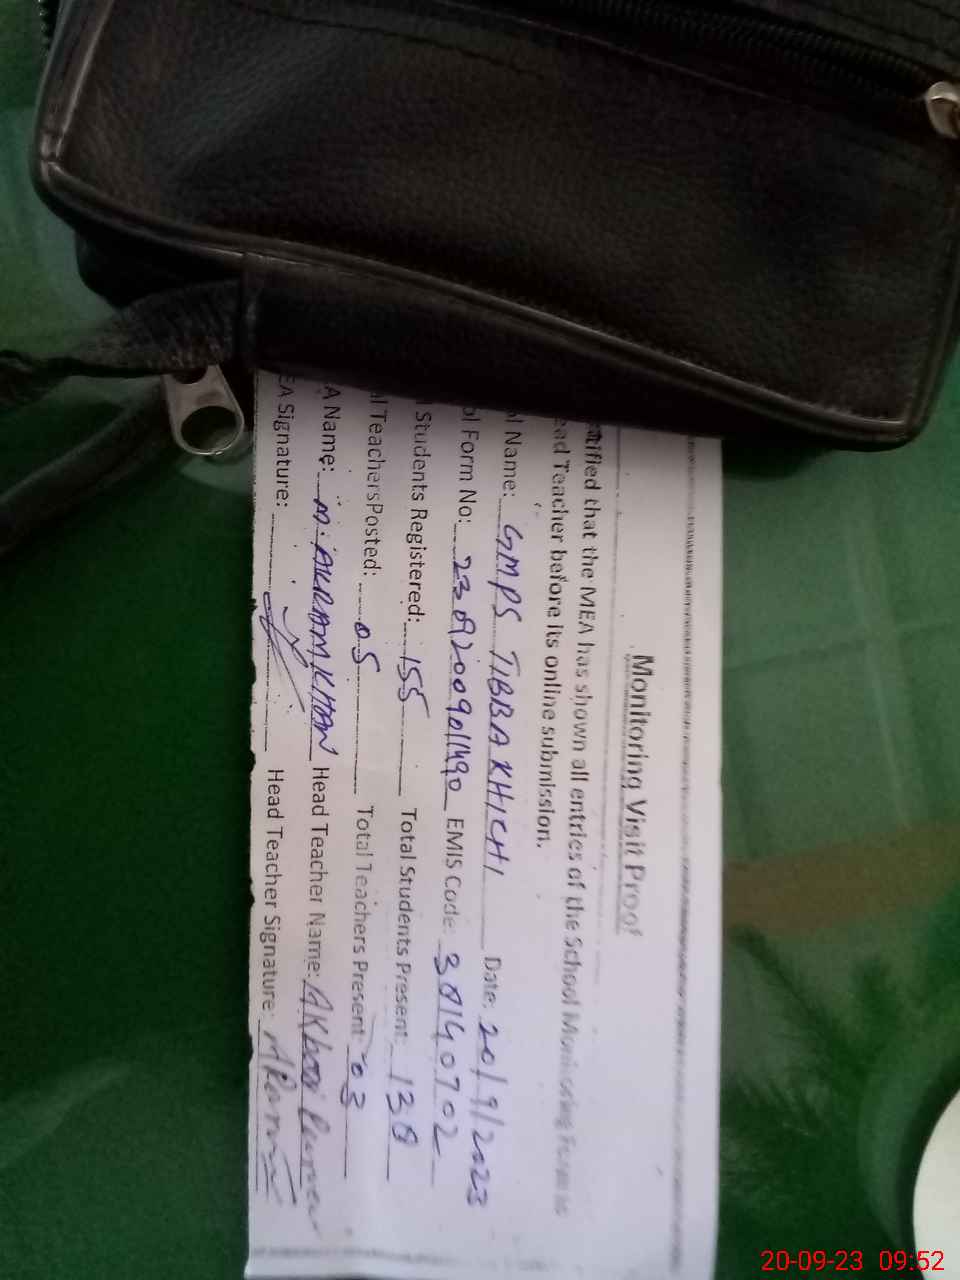 Monitoring Visit Proof
tified that the MEA has shown all entries of the School Monitoring Form to
ead Teacher before its online submission.
ol Name: GMPS TIBBA KHICHI Date: 20/9/2023
ol Form No: EMIS Code: 38140702
l Students Registered: 155 Total Students Present: 138
al TeachersPosted: 05 Total Teachers Present: 03
A Name: M. AKRAM KHAN Head Teacher Name:
EA Signature: Head Teacher Signature:
20-09-23 09:52